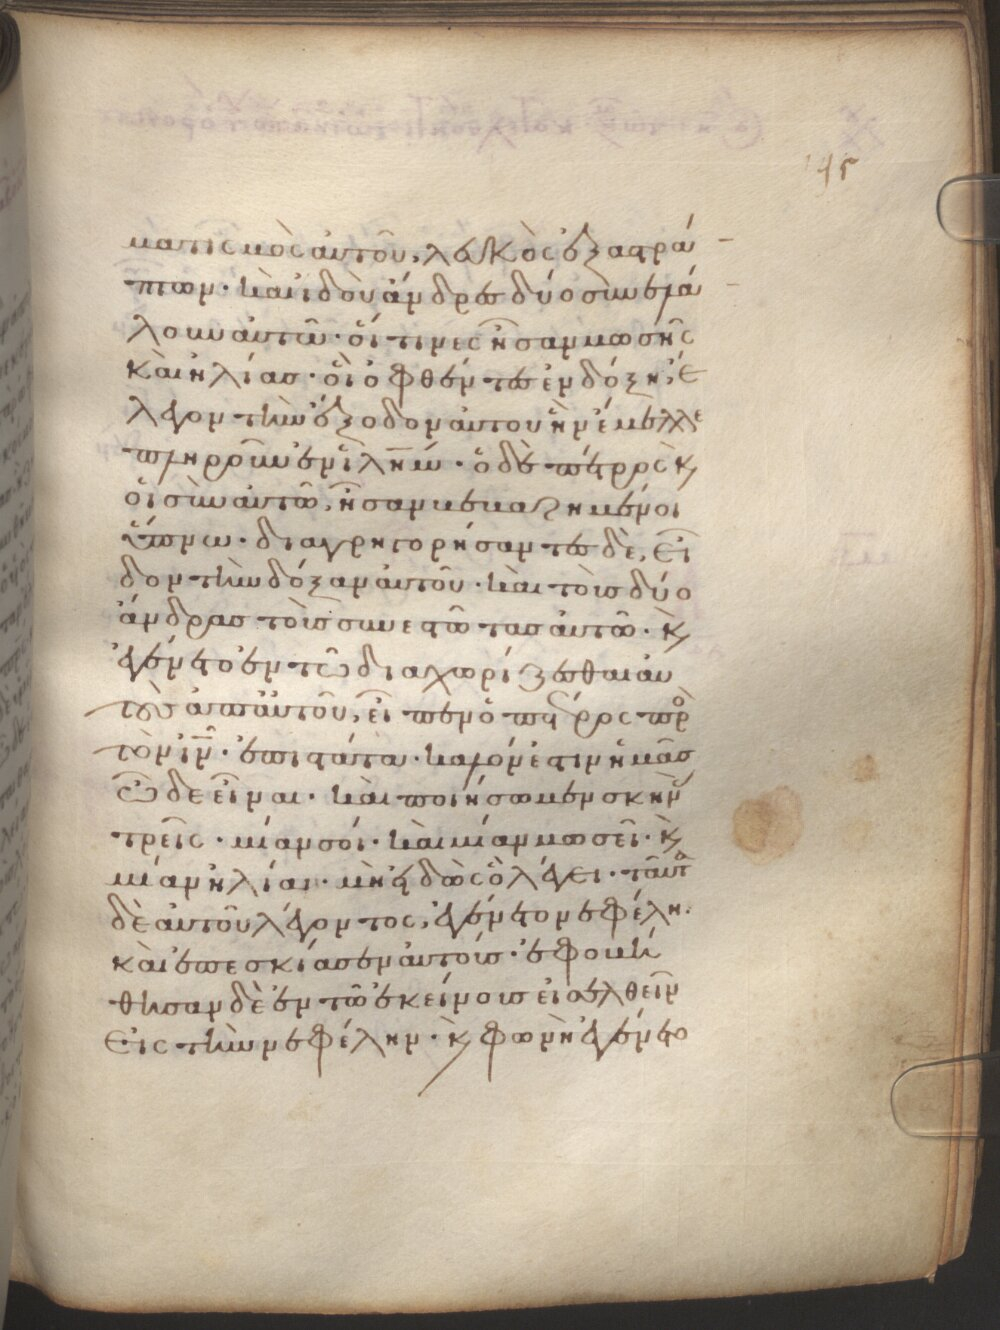 ματισμὸς αὐτοῦ, λευκὸς ἐξαστρά
πτων· καὶ ἰδοὺ ἄνδρες δύο συνελά
λουν αὐτῶ· οἵτινες ἦσαν μωσῆς
καὶ ἠλίας· οἳ ὀφθέντες ἐν δόξη, ἔ
λεγον τὴν ἔξοδον αὐτοῦ ἣν ἔμελλε
πληροῦν ἐν ἱλημ· ὁ δὲ πέτρος κ
οἱ σὺν αὐτῶ, ἦσαν βεβαρημένοι
ὕπνω· διαγρηγορήσαντες δὲ, εἶ
δον τὴν δόξαν αὐτοῦ· καὶ τοὺς δύο
ἄνδρας τοὺς συνεστῶτας αὐτῶ· κ
ἐγένετο ἐν τῶ διαχωρίζεσθαι αὐ
τοὺς ἀπ' αὐτοῦ, εἶπεν ὁ πέτρος πρ
τὸν ιν· ἐπιστάτα· καλόν ἐστιν ἡμᾶς
ὧδε εἶναι· καὶ ποιήσωμεν σκην
τρεῖς· μίαν σοί· καὶ μίαν μωσεῖ· κ
μίαν ἠλίαι· μὴ εἰδὼς ὃ λέγει· ταῦτ
δὲ αὐτοῦ λέγοντος, ἐγένετο νεφέλη·
καὶ ἐπεσκίασεν αὐτούς· ἐφοβή
θησαν δὲ ἐν τῶ ἐκείνους εἰσελθεῖν
εἰς τὴν νεφέλην· κ φωνὴ ἐγένετο